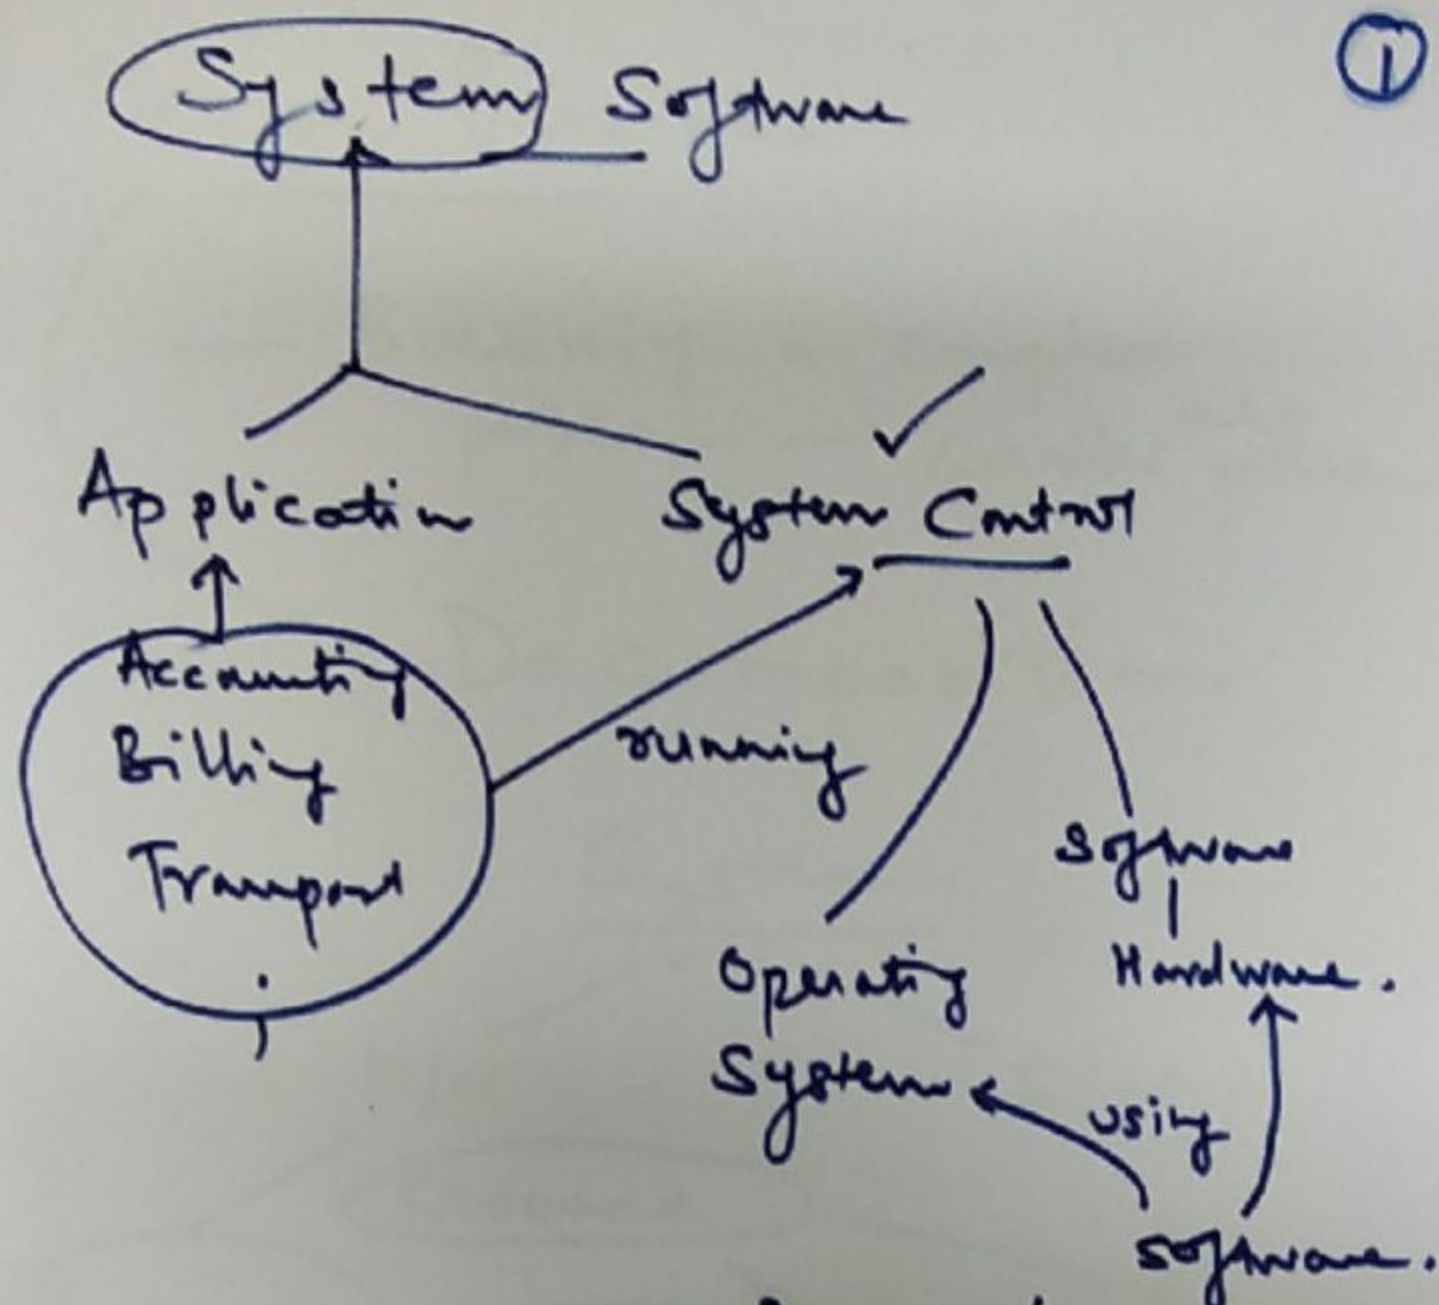 1
System Software
Application
System Control
Accounting
Billing
Transport
running
Software
Hardware.
Operating
System
using
software.